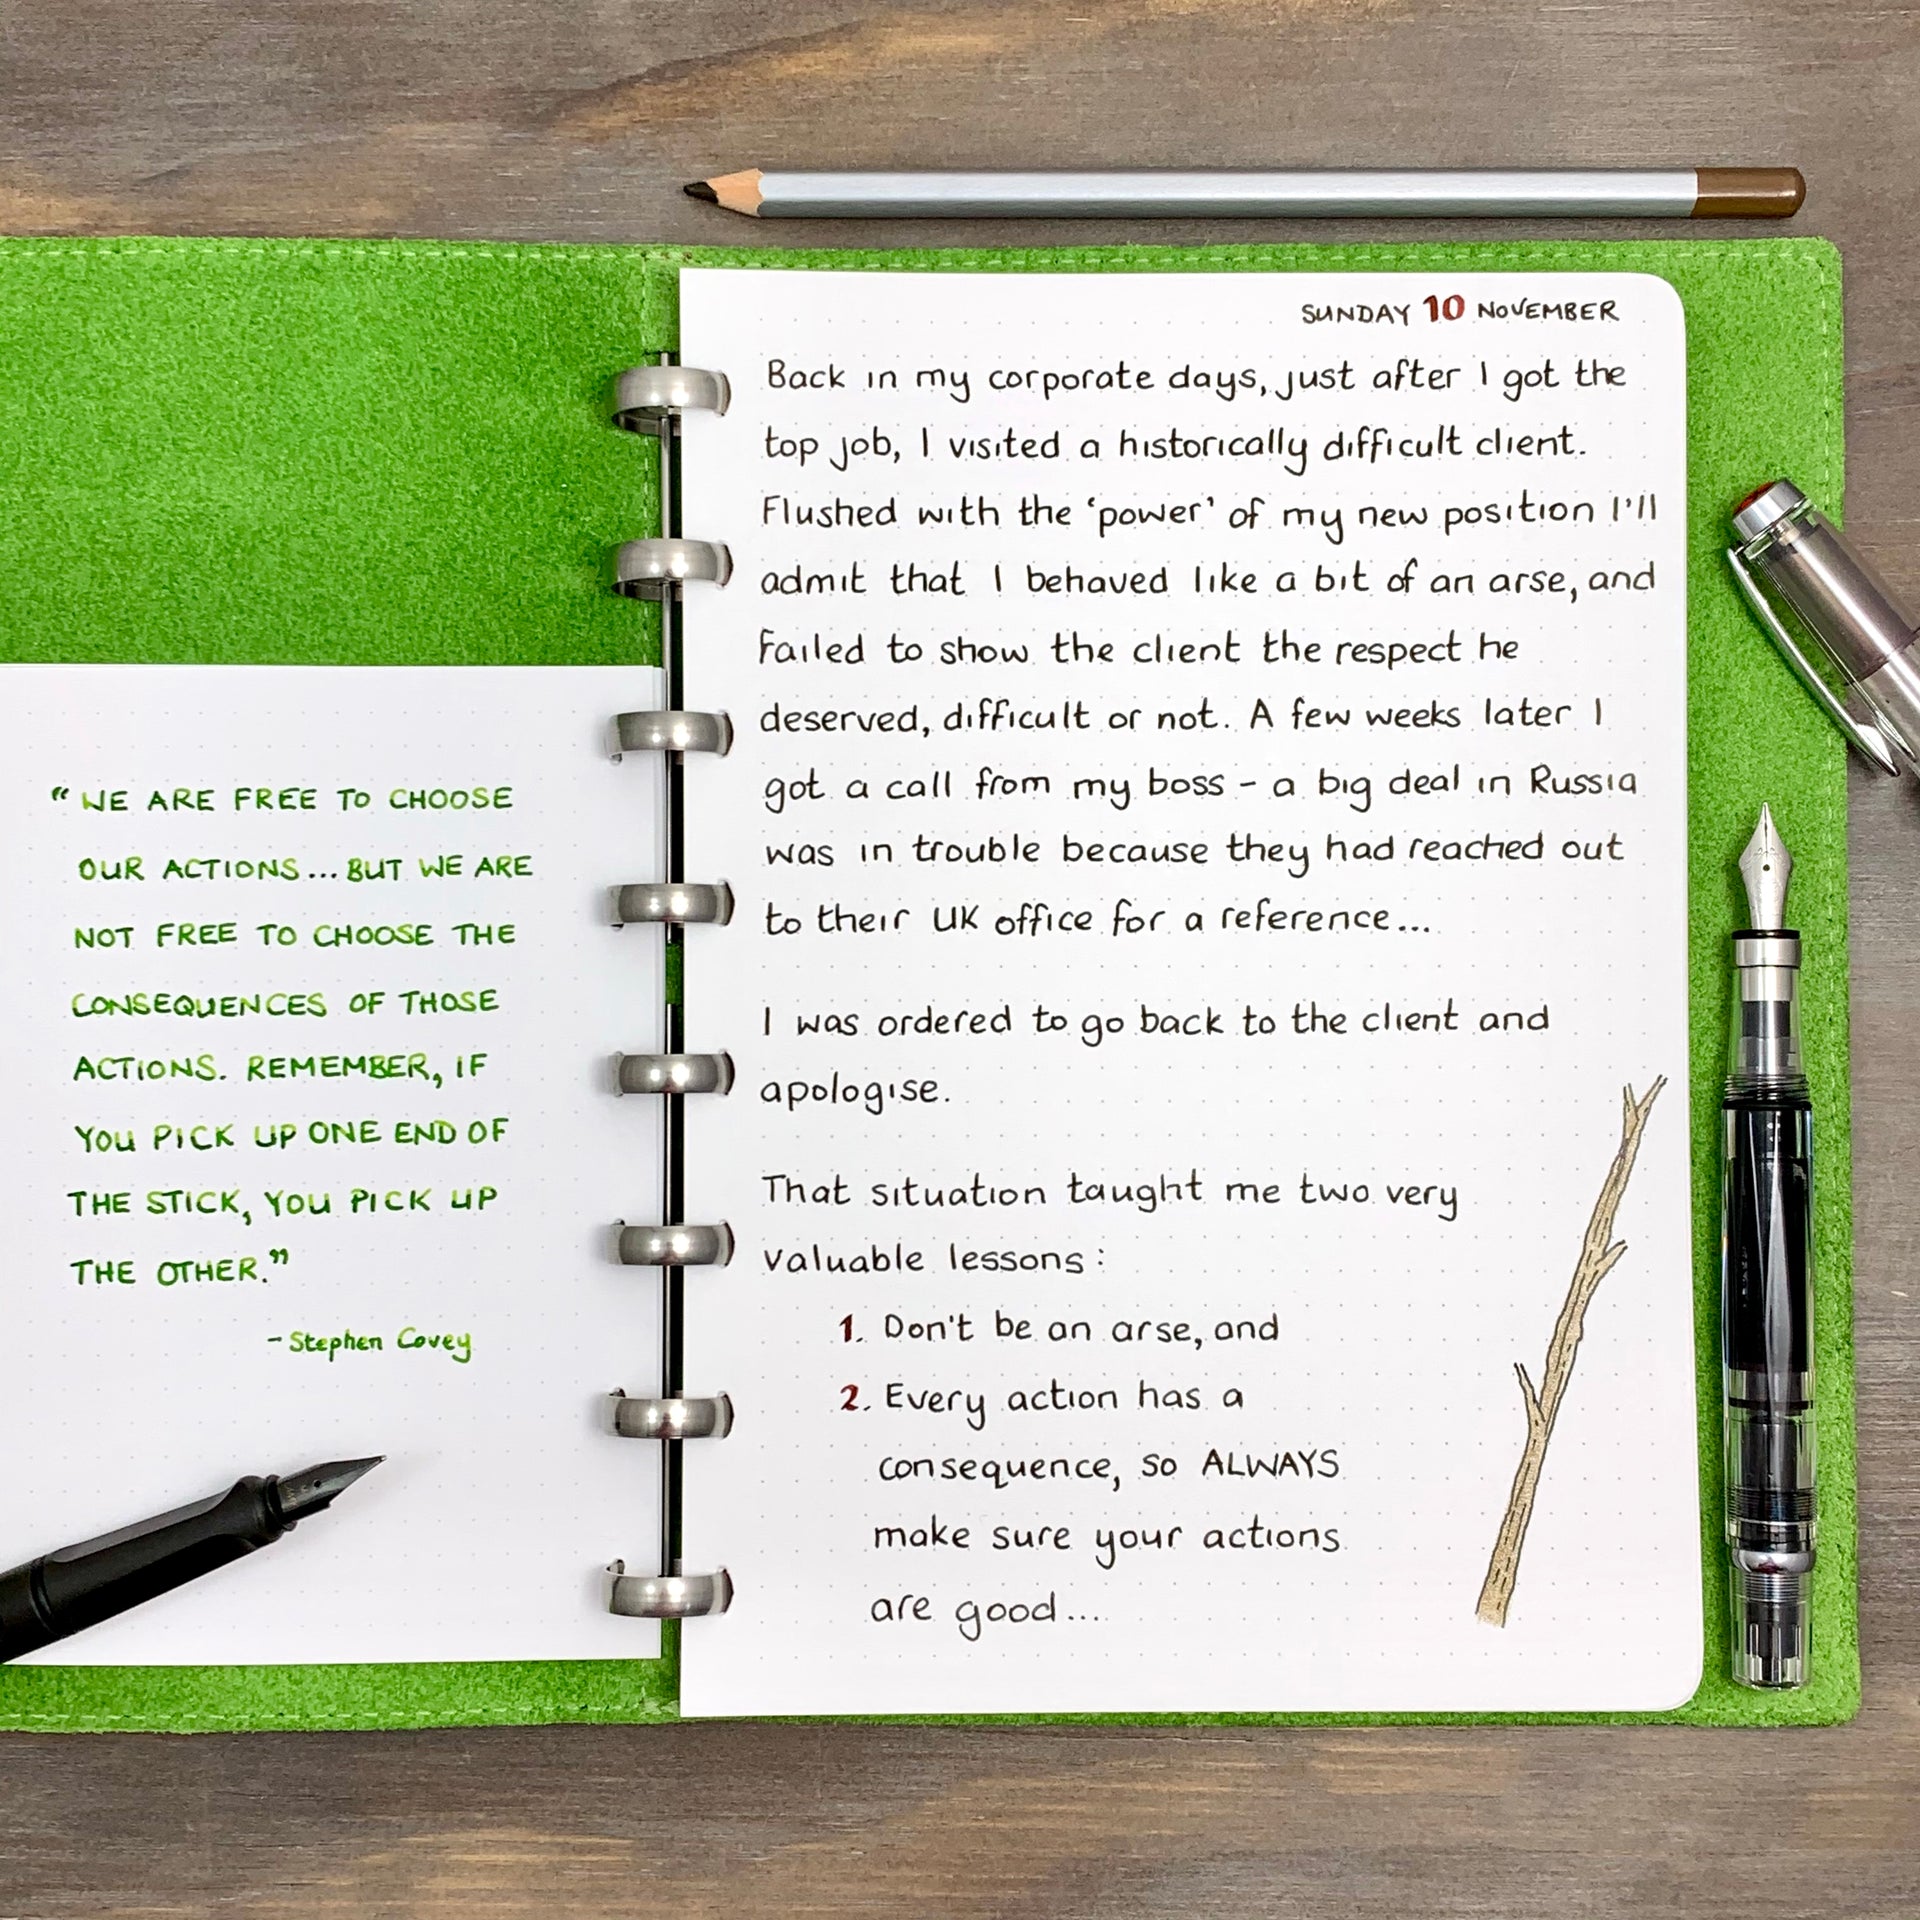 "WE ARE FREE TO CHOOSE
OUR ACTIONS... BUT WE ARE
NOT FREE TO CHOOSE THE
CONSEQUENCES OF THOSE
ACTIONS. REMEMBER, IF
YOU PICK UP ONE END OF
THE STICK, YOU PICK UP
THE OTHER."
- Stephen Covey
SUNDAY 10 NOVEMBER
Back in my corporate days, just after I got the
top job, I visited a historically difficult client.
Flushed with the 'power' of my new position I'll
admit that I behaved like a bit of an arse, and
failed to show the client the respect he
deserved, difficult or not. A few weeks later I
got a call from my boss - a big deal in Russia
was in trouble because they had reached out
to their UK office for a reference...
I was ordered to go back to the client and
apologise.
That situation taught me two very
valuable lessons:
1. Don't be an arse, and
2. Every action has a
consequence, so ALWAYS
make sure your actions
are good....